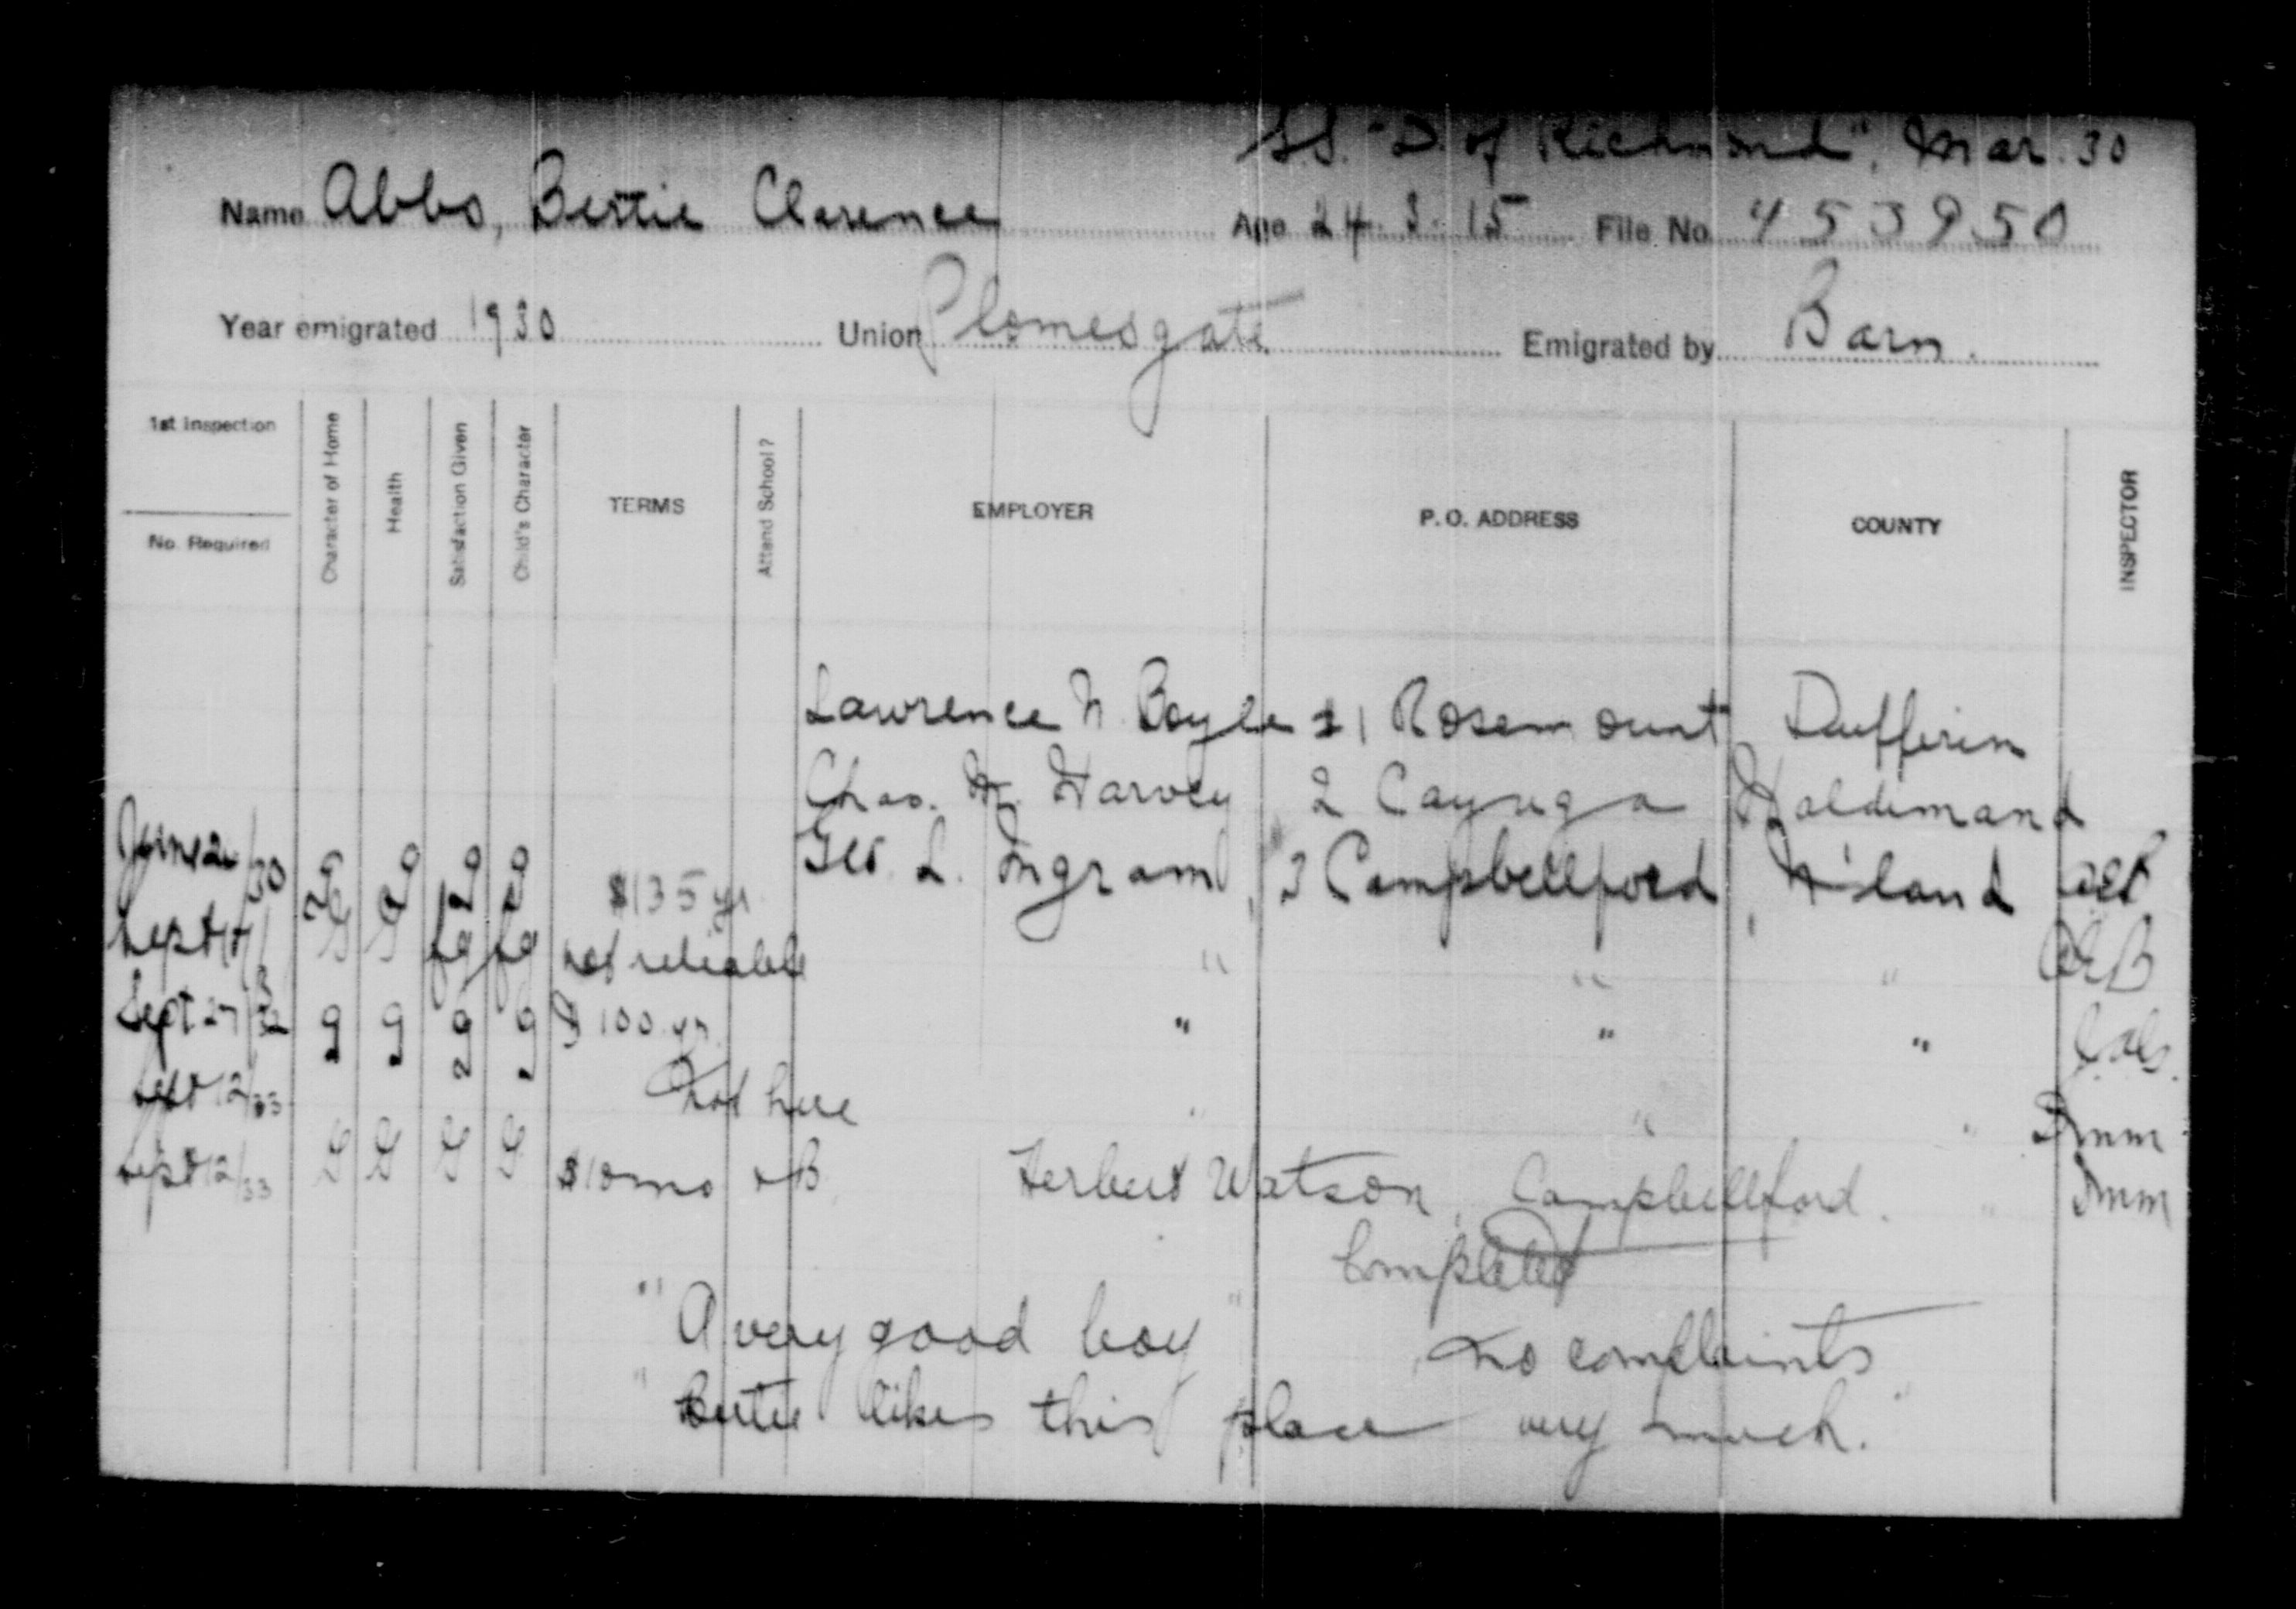 S.S. "D. of Richmond", Mar. 30
Name Abbs, Bertie Clarence Age 24.3.15 File No. 453950
Year emigrated 1930 Union Plomesgate Emigrated by Barn.
1st Inspection
No. Required
Character of Home
Health
Satisfaction Given
Child's Character
TERMS
Attend School?
EMPLOYER
P. O. ADDRESS
COUNTY
INSPECTOR
Lawrence N. Boyle #1 Rosemount Dufferin
Chas. Harvey, 2 Cayuga Haldimand
June 2 /30 g g g g $135 yr. Geo. L. Ingram, 3 Campbellford, N'land
Sept G G fg fg not reliable " " "
Sept 27/32 g g g g $100 yr. " " "
Sept 12/33 Not here " " " Dmm
Sept 12/33 G G G G $10 mo + B Herbert Watson, Campbellford. " Dmm
Completed
"A very good boy" No complaints
"Bertie likes this place very much."